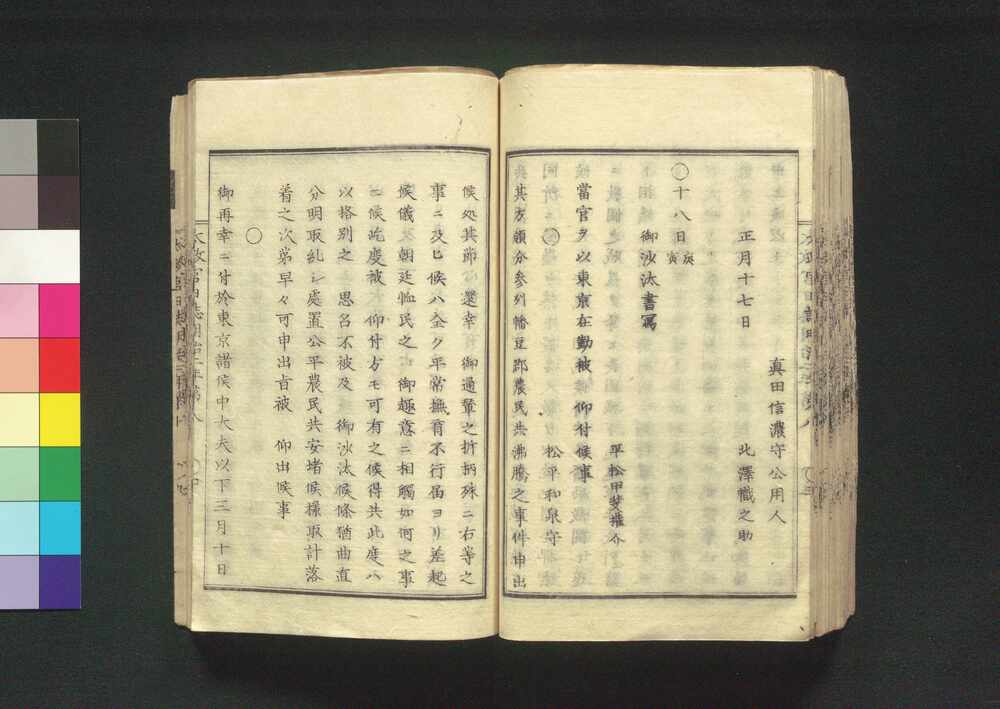 眞田信濃守公用人
北澤幟之助
正月十七日
○十八日庚寅
御沙汰書寫
平松甲斐權介
當官ヲ以東京在勤被　仰付候事
○
松平和泉守
其方領分参列幡豆郡農民共沸騰之事件申出
候処其節　還幸　御過輦之折柄殊ニ右等之
事ニ及ヒ候ハ全ク平常撫育不行届ヨリ差起
候儀　朝廷恤民之　御趣意ニ相觸如何之事
ニ候屹度被　仰付方モ可有之候得共此度ハ
以格別之　思召不被及　御沙汰候條猶曲直
分明取糺シ處置公平農民共安堵候様取計落
着之次第早々可申出旨被　仰出候事
○
御再幸ニ付於東京諸侯中大夫以下三月十日